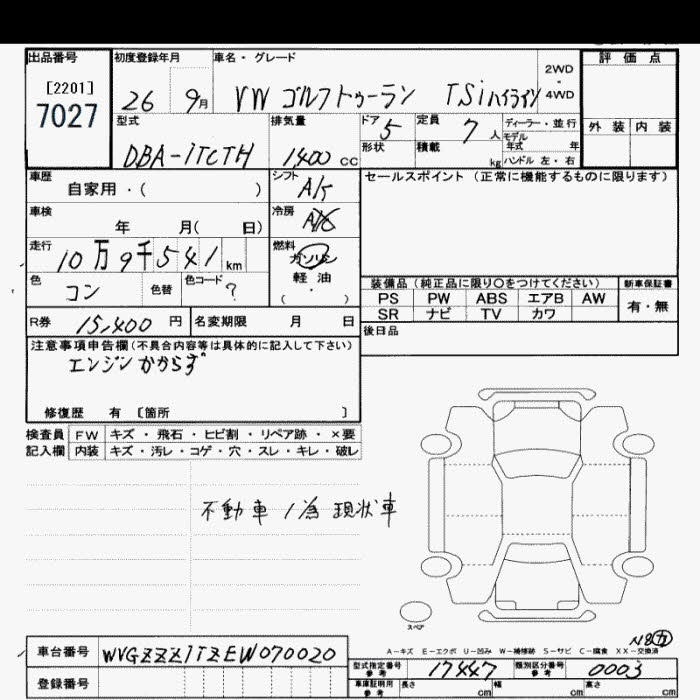 出品番号 初度登録年月 車名・グレード 評価点
[2201]
7027
26 9月 VW ゴルフトゥーラン TSiハイライン 2WD 4WD
型式 排気量 ドア 5 定員 7人 ディーラー・並行 外装 内装
形状 積載 kg モデル年式 年
DBA-1TCTH 1400 CC ハンドル 左・右
車歴 自家用・( ) シフト A/T セールスポイント(正常に機能するものに限ります)
車検 年 月( 日) 冷房 A/C
走行 10万9千541km 燃料 ガソリン
軽油
( ・ )
色 コン 色替 色コード ?
装備品(純正品に限り〇をつけてください) 新車保証書
PS PW ABS エアB AW 有・無
SR ナビ TV カワ
R券 15,400円 名変期限 月 日 後日品
注意事項申告欄(不具合内容等は具体的に記入して下さい)
エンジンかからず
修復歴 有 [箇所 ]
検査員 FW キズ・飛石・ヒビ割・リペア跡・×要
記入欄 内装 キズ・汚レ・コゲ・穴・スレ・キレ・破レ
不動車ノ為 現状車
スペア
A-キズ E-エクボ U-凹み W-補修跡 S-サビ C-腐食 XX-交換済
車台番号 WVGZZZ1TZEW070020
型式指定番号 参考 17447 類別区分番号 参考 0003
登録番号
車庫証明用 参考 長さ cm 幅 cm 高さ cm